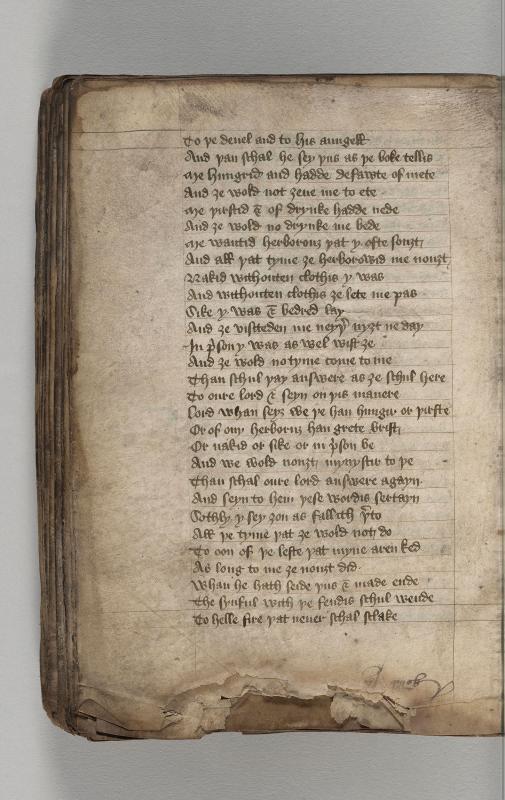 To þe deuel and to his aungell
And þan schal he sey þus as þe boke tellis
Me hungrid and hadde defawte of mete
And ȝe wold not ȝeue me to ete
Me þirstid & of drynke hadde nede
And ȝe wold no drynke me bede
Me wantid herborouȝ þat y ofte souȝt
And all þat tyme ȝe herborowid me nouȝt
Nakid withouten clothis y was
And withouten clothis ȝe lete me pas
Sike y was & bedred lay
And ȝe visiteden me neyþ nyȝt ne day
In pson y was as wel wist ȝe
And ȝe wold no tyme come to me
Than schul þay answere as ȝe schul here
To oure lord & seyn on þis manere
Lord whan seyȝ we þe han hungur or þirste
Or of ony herboruȝ han grete brist
Or nakid or sike or in pson be
And we wold nouȝt mynystir to þe
Than schal oure lord answere agayn
And seyn to hem þese wordis sertayn
Sothly y sey ȝou as fallith þto
All þe tyme þat ȝe wold not do
To oon of þe leste þat myne aren ked
As long to me ȝe nouȝt did
Whan he hath seide þus & made ende
The synful with þe fendis schul wende
To helle fire þat neuer schal slake